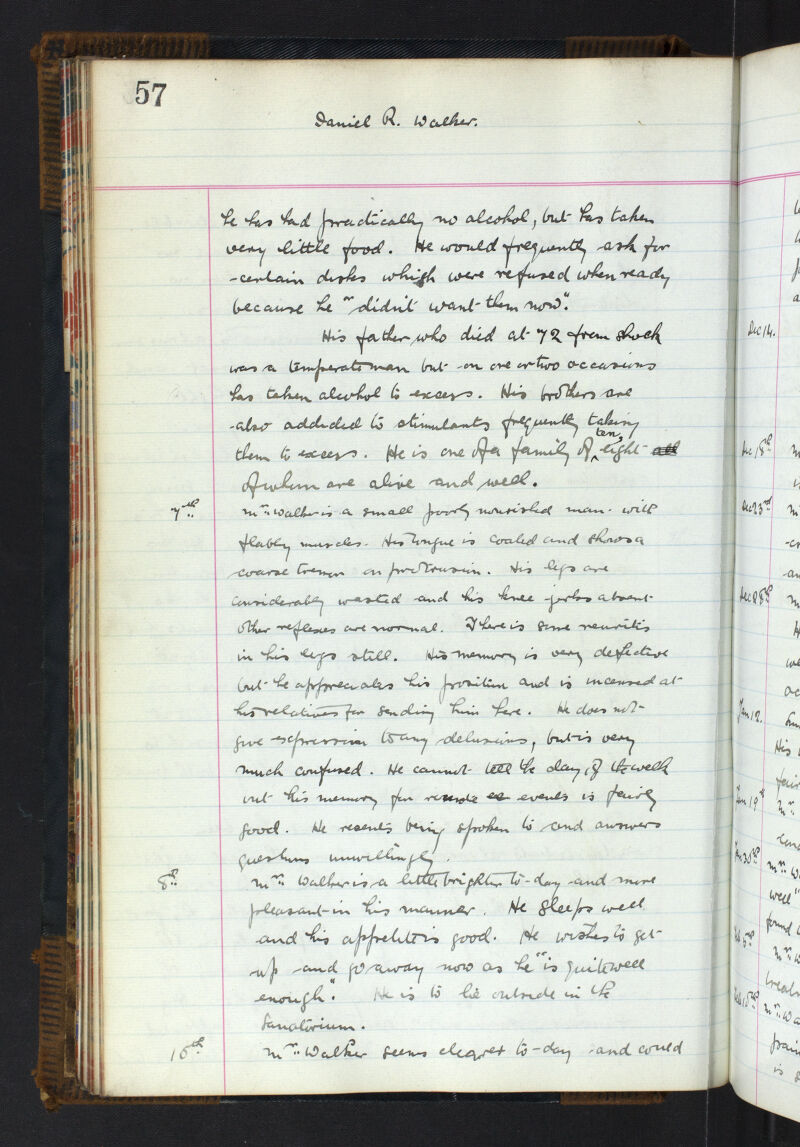 57
Daniel R. Walker.
he has had practically no alcohol, but has taken
very little food. He would frequently ask for
certain dishes which were refused when ready
because he "didn't want them now".
His father who died at 72 from shock
was a temperate man but on one or two occasions
has taken alcohol to excess. His brothers are
also addicted to stimulants frequently taking
them to excess. He is one of a family of ten, eight all
of whom are alive and well.
7th Mr. Walker is a small poorly nourished man with
flabby muscles. His tongue is coated and shows a
coarse tremor on protrusion. His legs are
considerably wasted and his knee-jerks absent
other reflexes are normal. There is some neuritis
in his legs still. His memory is very defective
but he appreciates his position and is incensed at
his relatives for sending him here. He does not
give expression to any delusions, but is very
much confused. He cannot tell the day of the week
but his memory for remote events is fairly
good. He resents being spoken to and answers
questions unwillingly.
8th Mr. Walker is a little brighter to-day and more
pleasant in his manner. He sleeps well
and his appetite is good. He wishes to get
up and go away now as he "is quite well
enough". He is to lie outside in the
Sanatorium.
10th Mr. Walker seems clearer to-day and could
Dec 14.
Dec 18th
Dec 23rd
Dec 28th
Jan 12.
Jan 19th
Jan 30th
well"
found